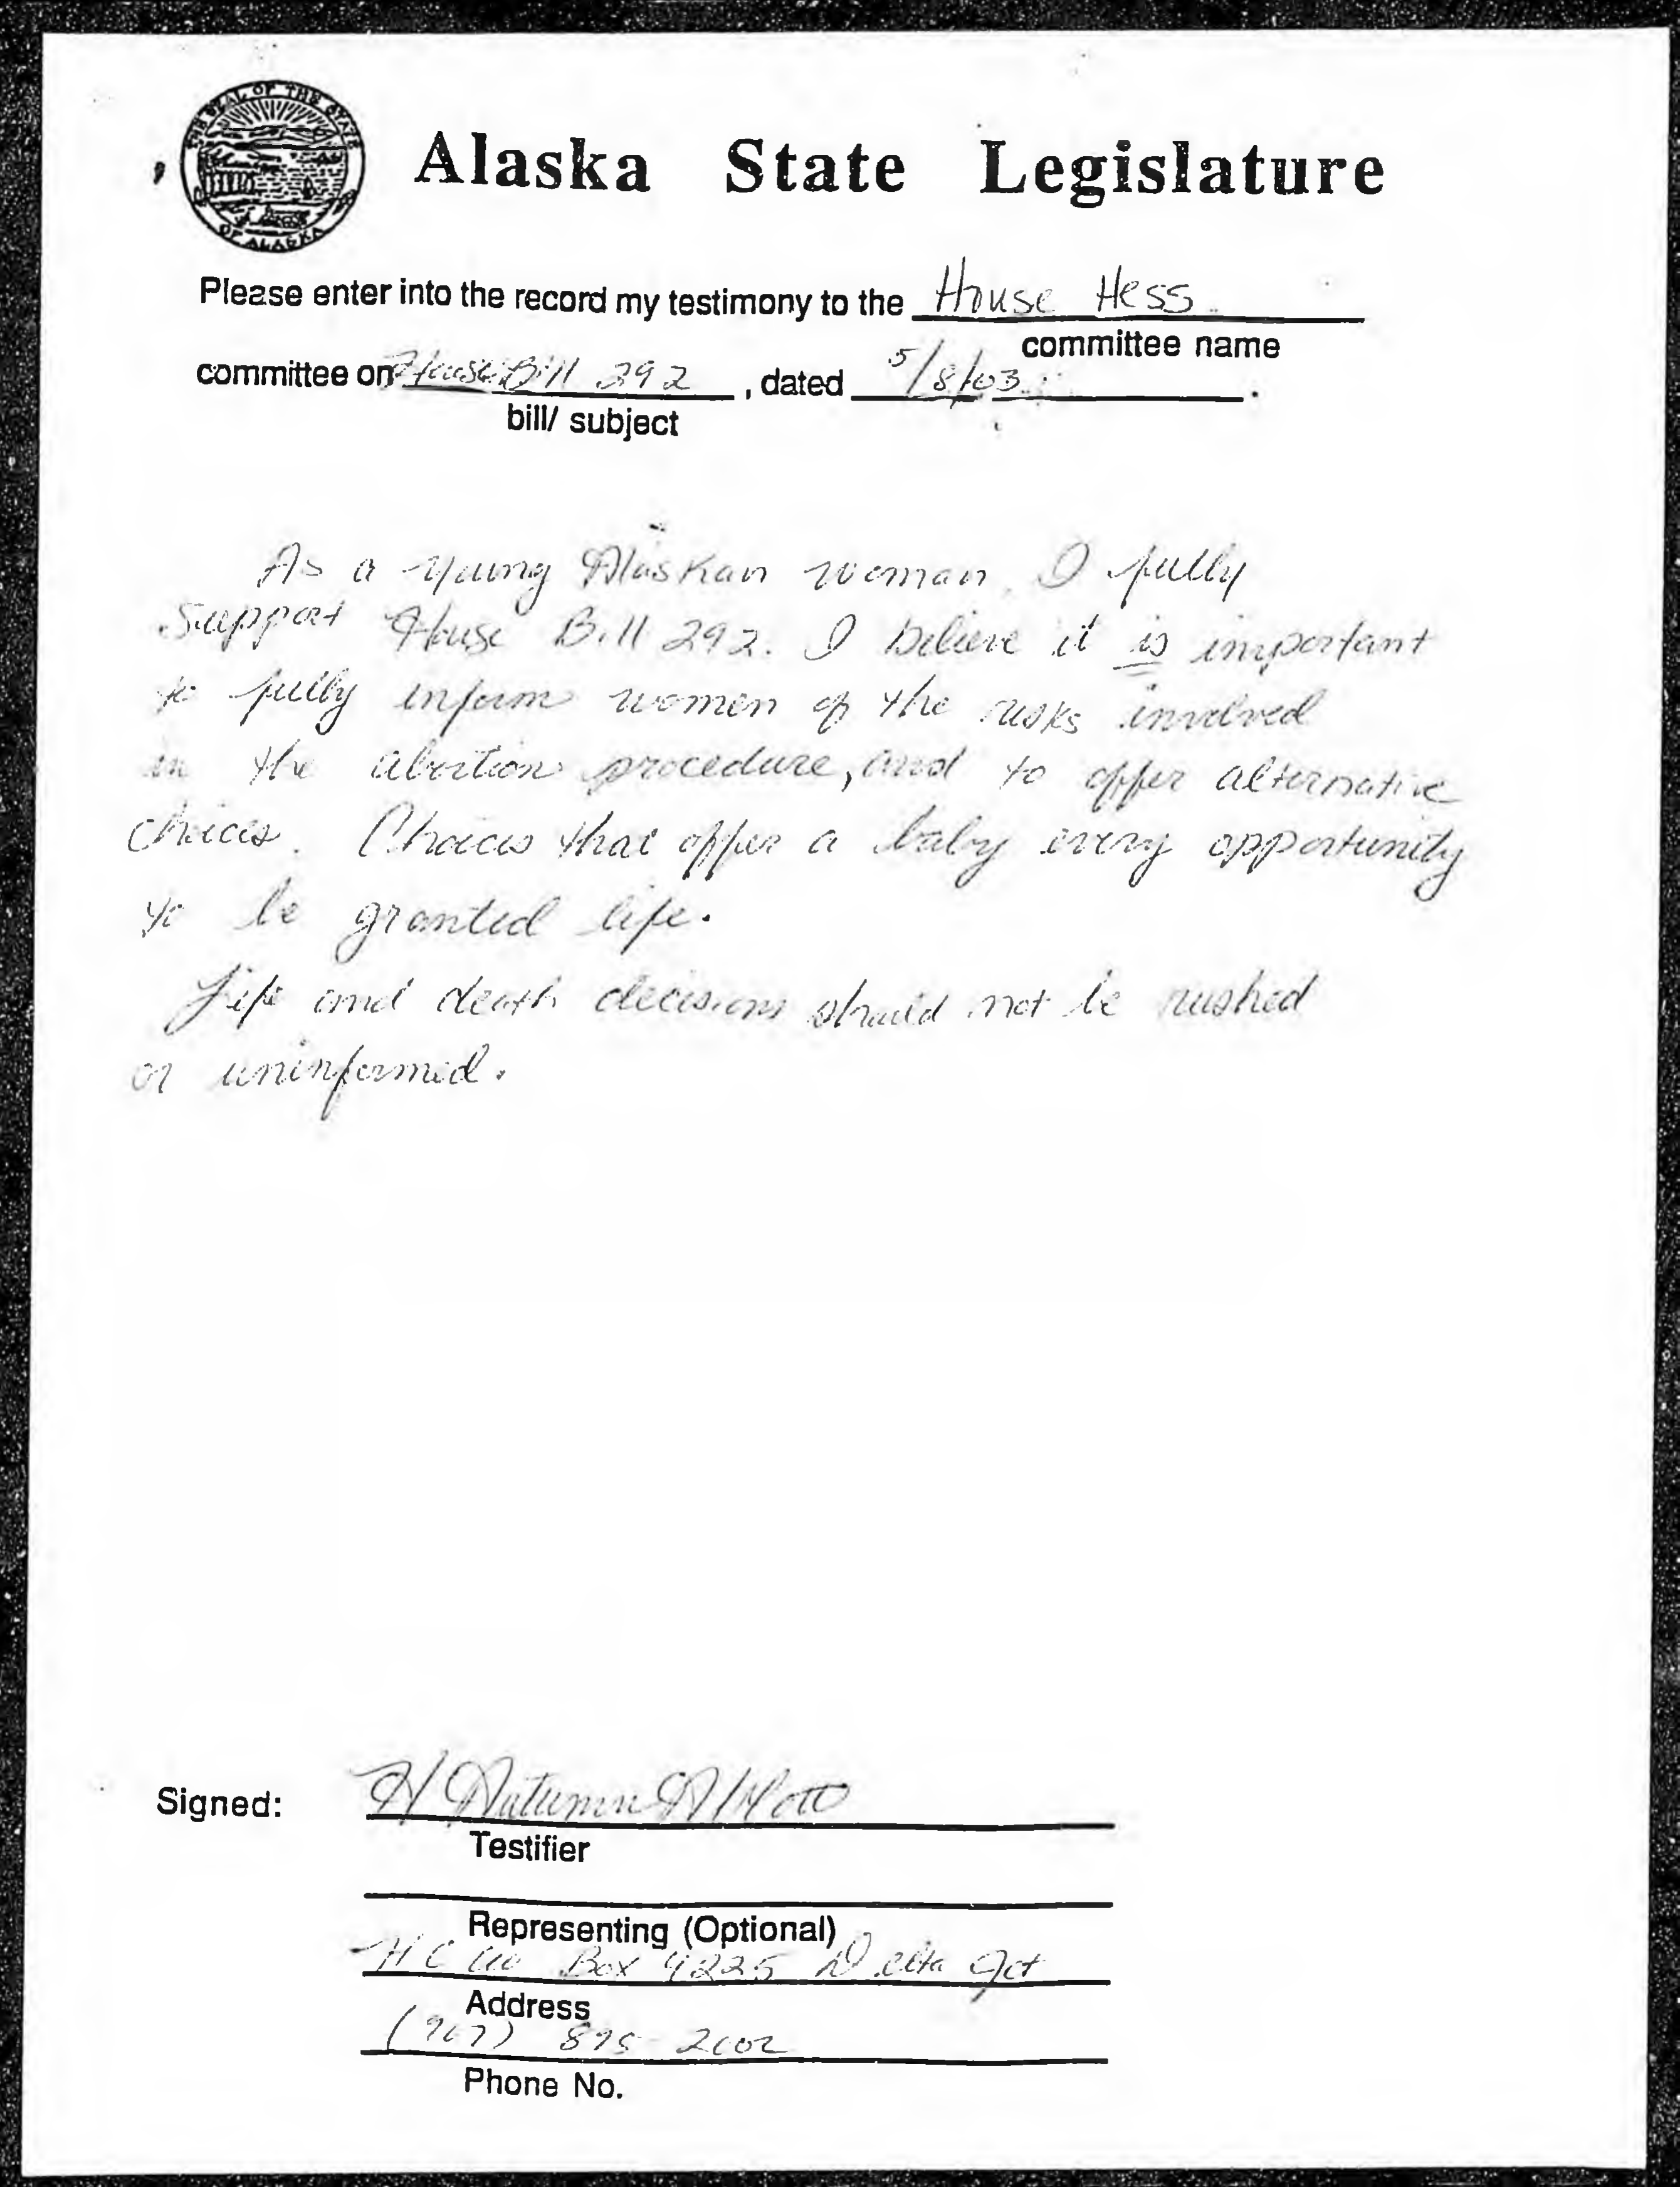 THE SEAL OF THE STATE OF ALASKA
Alaska State Legislature
Please enter into the record my testimony to the House Hess
committee name
committee on House Bill 292, dated 5/8/03.
bill/ subject
As a young Alaskan woman, I fully
support House Bill 292. I believe it is important
to fully inform women of the risks involved
in the abortion procedure, and to offer alternative
choices. Choices that offer a baby every opportunity
to be granted life.
Life and death decisions should not be rushed
or uninformed.
Signed: H Autumn
Testifier
Representing (Optional)
HC Box 4225 Delta Jct
Address
(907) 895-2002
Phone No.